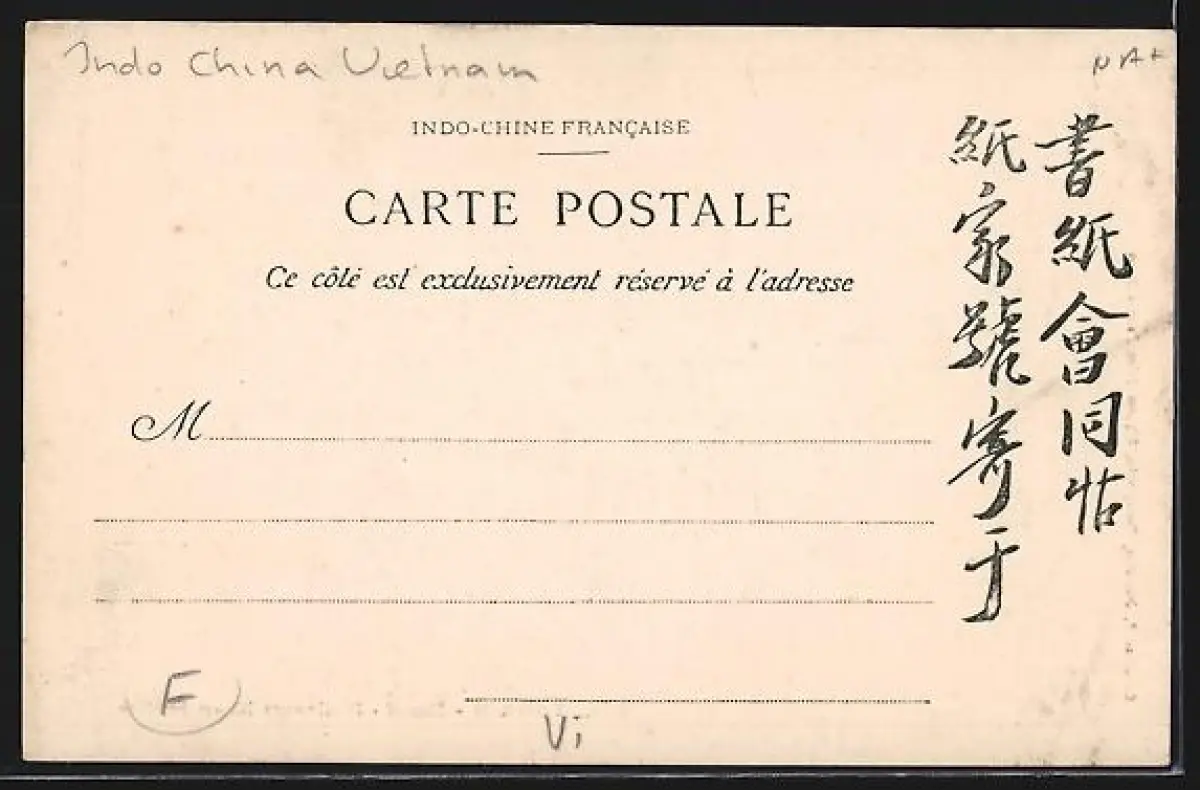 Indo China Vietnam
INDO-CHINE FRANÇAISE
CARTE POSTALE
Ce côté est exclusivement réservé à l'adresse
M
書紙會同帖
紙家號寄于
F
Vi